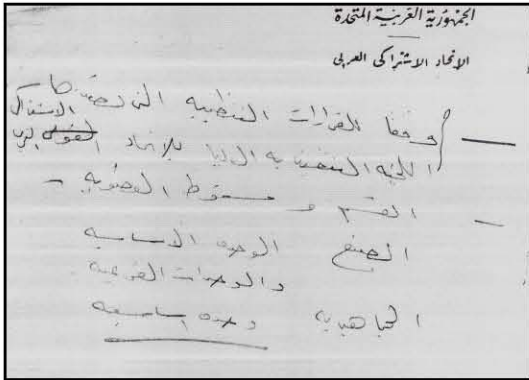 الجمهورية العربية المتحدة
الاتحاد الاشتراكى العربى
— وفقا القرارات التنظيمية التى
اللجنة التنفيذية العليا للاتحاد الاشتراكى العربى
— القسم و سقوط العضوية –
المصنع الوحدة الاساسية
والوحدات الفرعية
الجماهيرية وحدة اساسية